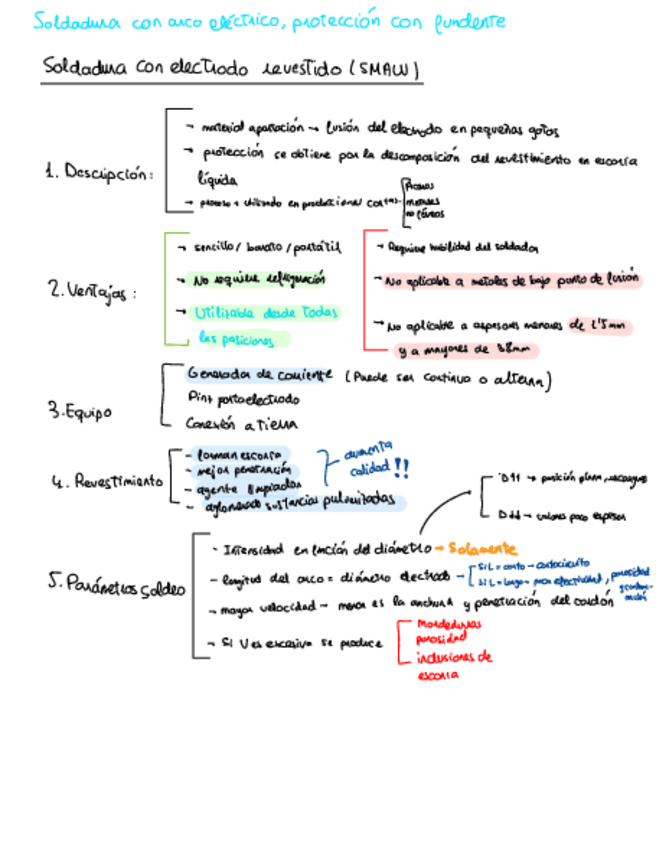 Soldadura con arco eléctrico, protección con fundente
Soldadura con electrodo revestido (SMAW)
1. Descripción:
→ material aportación → fusión del electrodo en pequeñas gotas
→ protección se obtiene por la descomposición del revestimiento en escoria
líquida
→ proceso + utilizado en producciones cortas
Aceros
metales
no férreos
2. Ventajas:
→ sencillo / barato / portátil
→ No requiere refrigeración
→ Utilizable desde todas
las posiciones
→ Requiere habilidad del soldador
→ No aplicable a metales de bajo punto de fusión
→ No aplicable a espesores menores de 1'5mm
y a mayores de 38mm
3. Equipo
Generador de corriente (Puede ser continuo o alterna)
Pinz portaelectrodo
Conexión a Tierra
4. Revestimiento
- forman escoria
- mejor penetración
- agente limpiador
- aglomerado sustancias pulverizadas
aumenta
calidad!!
D↑↑ → posición plana,
D↓↓ → uniones poco espesor
5. Parámetros soldeo
- Intensidad en función del diámetro → Solamente
- longitud del arco = diámetro electrodo
Si L = corto → cortocircuito
Si L = largo → poca efectividad, porosidad
- mayor velocidad → menor es la anchura y penetración del cordón
→ Si V es excesiva se produce
Mordeduras
porosidad
inclusiones de
escoria